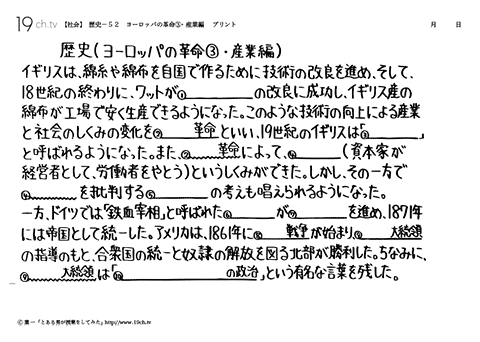 19ch.tv 【社会】 歴史－52 ヨーロッパの革命③・産業編 プリント 月 日
歴史(ヨーロッパの革命③・産業編)
イギリスは、綿糸や綿布を自国で作るために技術の改良を進め、そして、
18世紀の終わりに、ワットが①________の改良に成功し、イギリス産の
綿布が工場で安く生産できるようになった。このような技術の向上による産業
と社会のしくみの変化を②____革命といい、19世紀のイギリスは「③________」
と呼ばれるようになった。また、②____革命によって、④________(資本家が
経営者として、労働者をやとう)というしくみができた。しかし、その一方で
④________を批判する⑤________の考えも唱えられるようになった。
一方、ドイツでは「鉄血宰相」と呼ばれた⑥________が⑦________を進め、1871年
には帝国として統一した。アメリカは、1861年に⑧____戦争が始まり、⑨____大統領
の指導のもと、合衆国の統一と奴隷の解放を図る北部が勝利した。ちなみに、
⑨____大統領は「⑩________の政治」という有名な言葉を残した。
© 葉一「とある男が授業をしてみた」http://www.19ch.tv